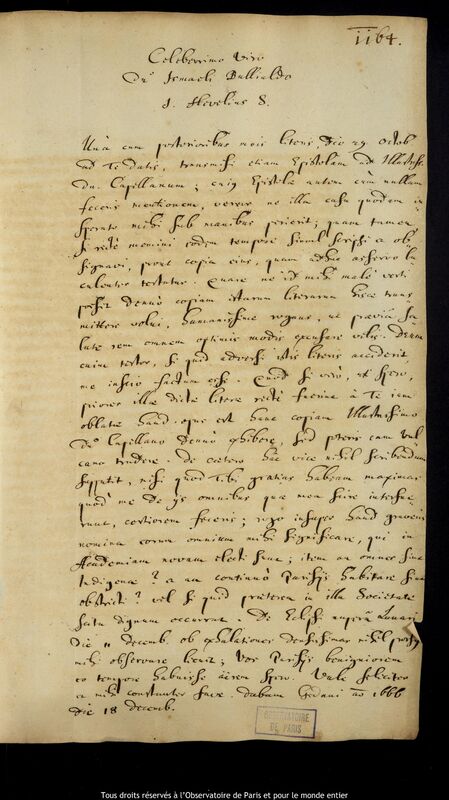 1164.
Celeberrimo Viro
Dno Ismaeli Bullialdo
J. Hevelius S.
Unà cum posterioribus meis literis, die 29 Octob
ad Te datis, transmisi etiam Epistolam ad Illustriss.
Dn. Capellanum; cujus Epistolae autem cùm nullam
feceris mentionem, vereor ne illa casu quodam in
sperato mihi sub manibus perierit; quam tamen
si rectè memini eodem tempore simul scripsi a ob
signavi, prout copia ejus, quam adhuc asservo lu
culenter testatur. Quare ne id mihi malè verti
possit denuò copiam istarum literarum hisce trans
mittere volui, humanissimè rogans, ut praeviâ sa
lute rem omnem optimis modis excusare velis. Deum
enim testor, si quid adversi istis literis acciderit,
me inscio factum esse. Quod si verò, ut spero,
priores illae dictae literae rectè fuerint à Te jam
oblatae haud opus est hanc copiam Illustrissimo
Dn. Capellano denuò exhibere, sed poteris eam Vul
cano tradere. De caetero hac vice nihil scribendum
suppetit, nisi quod Tibi gratias habeam maximas
quod me de ijs omnibus quae mea scire interfue
runt, certiorem feceris; rogo insuper haud graveris
nomina eorum omnium mihi significare, qui in
Academiam novam electi sunt; item an omnes sint
Indigenae? a an continuò Parisijs habitare sint
obstricti? vel si quid praeterea in illa Societate
scitu dignum occurrat. De Eclipsi nuperâ Lunari
die 11 decemb. ob exhalationes densissimas nihil prorsus
mihi observare licuit; Vos Parisijs benigniorem
eo tempore habuisse aërem spero. Vale feliciter
a mihi constanter fave. dabam Gedani aō 1666
die 18 decemb.
OBSERVATOIRE
DE PARIS
Tous droits réservés à l'Observatoire de Paris et pour le monde entier